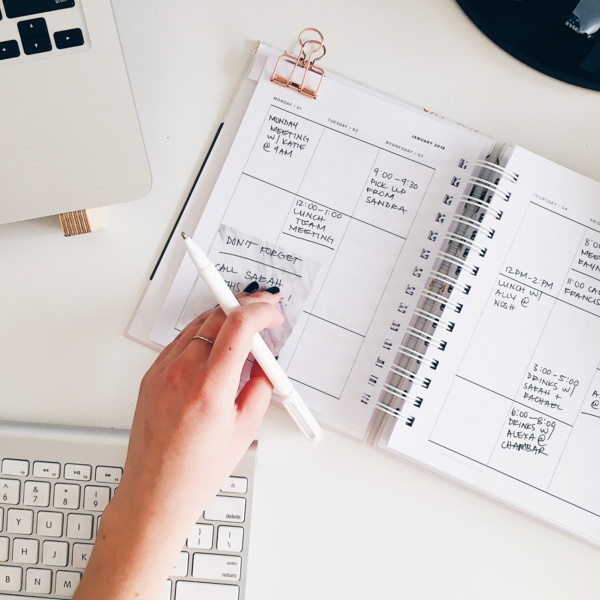 JANUARY 2018
MONDAY / 01
TUESDAY / 02
WEDNESDAY / 03
MONDAY
MEETING
W/ KATIE
@ 9AM
9:00-9:30
PICK UP
FROM
SANDRA
12:00-1:00
LUNCH
TEAM
MEETING
DON'T FORGET
CALL SARAH
THURSDAY / 04
12PM-2PM
LUNCH W/
ALLY @
NOSH
3:00-5:00
DRINKS W/
SARAH +
RACHAEL
6:00-8:00
DRINKS W/
ALEXA @
CHAMBAR
11:00
6
& 7
* 8
( 9
Y
U
I
H
J
K
B
N
M
delete
return